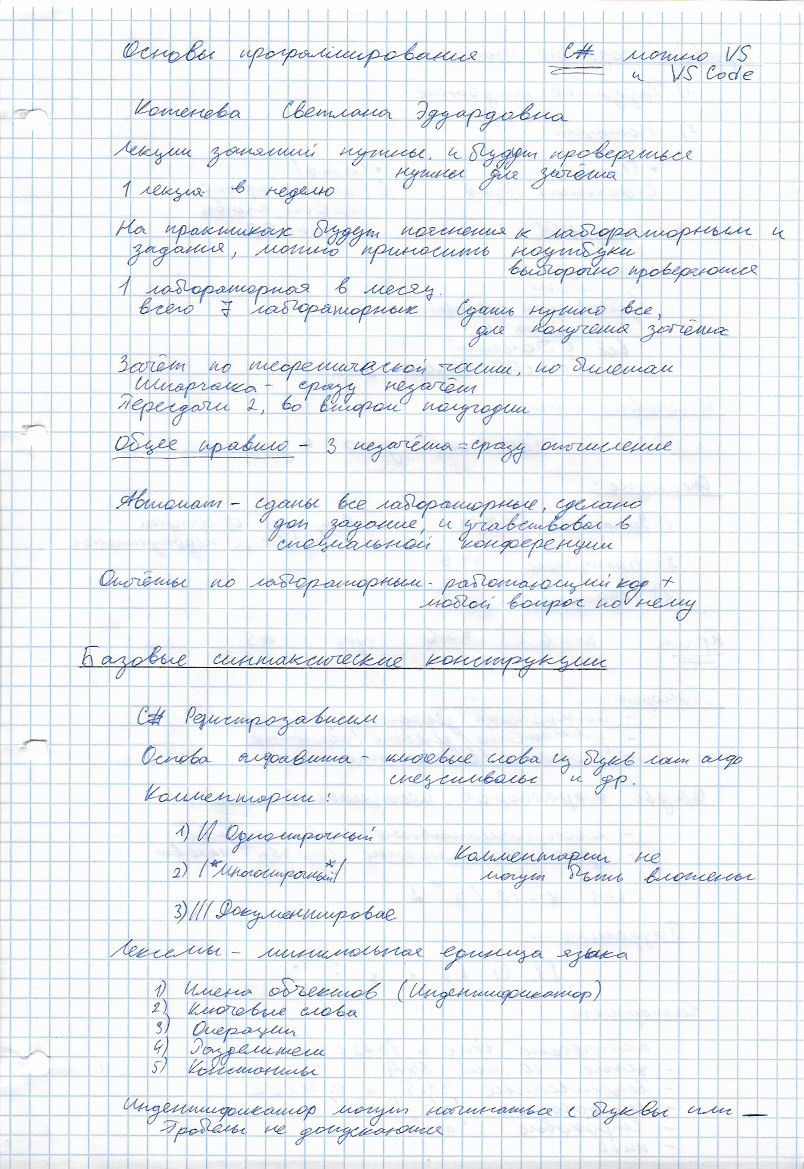 Основы программирования C# можно VS
и VS Code
Котенева Светлана Эдуардовна
Лекции занятий нужны. и будут проверяться
нужны для зачёта
1 лекция в неделю
На практиках будут пояснения к лабораторным и
задания, можно приносить ноутбуки
выборочно проверяются
1 лабораторная в месяц.
всего 7 лабораторных Сдать нужно все,
для получения зачёта
Зачёт по теоретической части, по билетам
Шпаргалка - сразу незачёт
Пересдачи 2, во втором полугодии
Общее правило - 3 незачёта = сразу отчисление
Автомат - сданы все лабораторные, сделано
доп задание, и учавствовал в
специальной конференции
Отчёты по лабораторным - работающий код +
любой вопрос по нему
Базовые синтаксические конструкции
C# Регистрозависим
Основа алфавита - ключевые слова из букв лат алф
спецсимволы и др.
Комментарии:
1) // Однострочный
Комментарии не
2) /*Многострочный*/ могут быть вложены
3) /// Документирование
Лексемы - минимальная единица языка
1) Имена объектов (Индентификатор)
2) Ключевые слова
3) Операции
4) Разделители
5) Константы
Индентификатор могут начинаться с буквы или _
Пробелы не допускаются